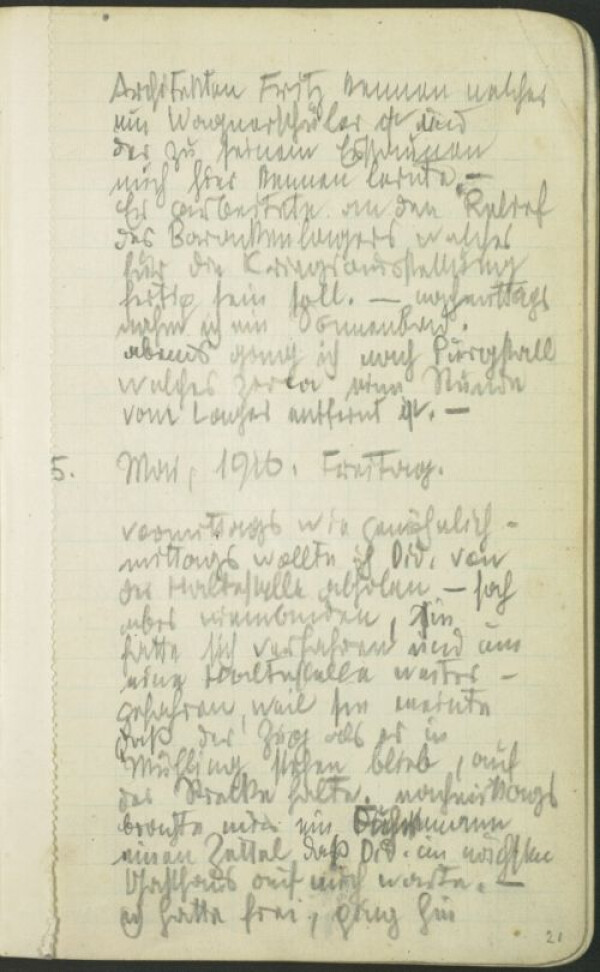 Architekten Fritz kennen welcher
ein Wagnerschüler ist und
der zu seinem Erstaunen
mich hier kennen lernte. —
Er arbeitete an den Relief
des Barackenlagers welches
für die Kriegsausstellung
fertig sein soll. — nachmittags
nahm ich ein Sonnenbad.
abends ging ich nach Purgstall
welches zirka eine Stunde
vom Lager entfernt ist. —
5. Mai, 1916. Freitag.
vormittags wie gewöhnlich –
mittags wollte ich Did. von
der Haltestelle abholen – sah
aber niemanden, sie
hatte sich verfahren und um
eine Haltestelle weiter –
gefahren, weil sie meinte
daß der Zug als er in
Mühling stehen blieb, auf
der Strecke halte. nachmittags
brachte mir ein Fuhrmann
einen Zettel daß Did. im nächsten
Gasthaus auf mich warte. —
ich hatte frei, ging hin
21